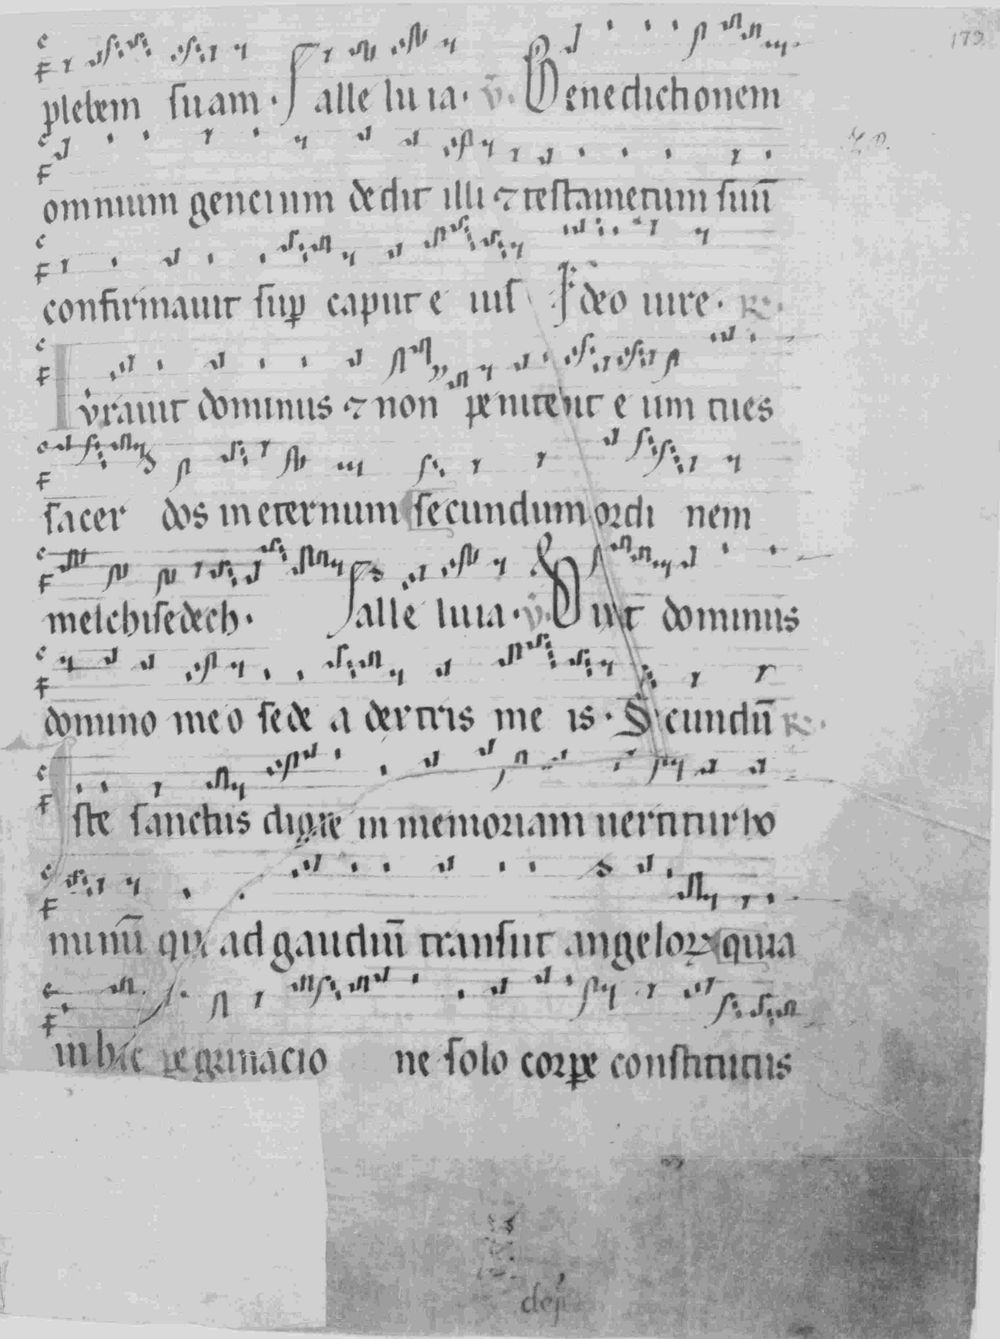 179
plebem suam · alle lu ia · v̄. Benedictionem
omnium gencium dedit illi ⁊ testametum suū
confirmauit sup̱ caput e ius Ideo iure · R̄.
Iurauit dominus ⁊ non penitebit e um tu es
sacer dos in eternum secundum ordi nem
melchisedech · alle luia · v̄. Dixit dominus
domino meo sede a dextris me is · Secundū R̄.
Iste sanctus digne in memoriam uertitur ho
minū qui ad gaudiū transiit angeloꝝ quia
in hac peregrinacio ne solo corpore constitutus